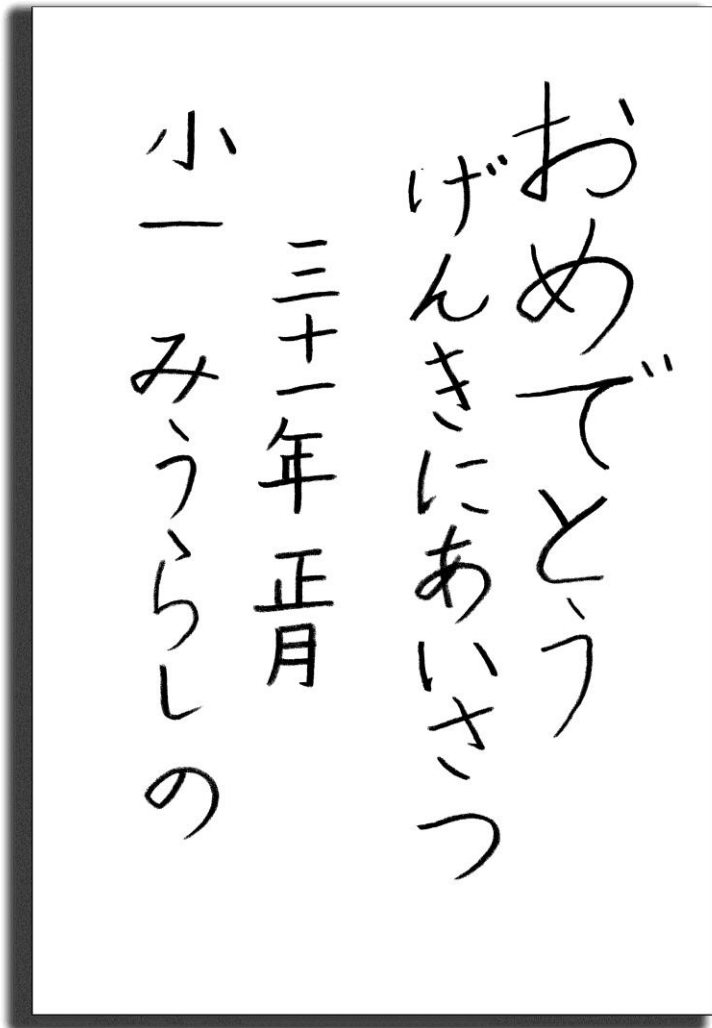 おめでとう
げんきにあいさつ
三十一年 正月
小一 みうらしの